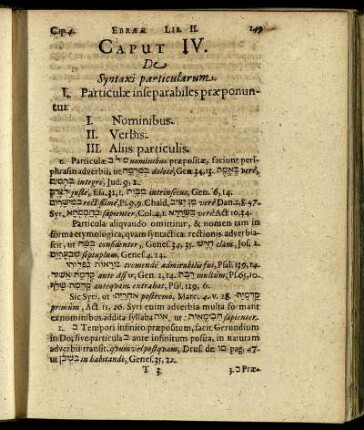 Cap. 4. EBRÆÆ LIB. II. 149
CAPUT IV.
De
Syntaxi particularum.
I. Particulæ inseparabiles præponun-
tur
I. Nominibus.
II. Verbis.
III. Aliis particulis.
1. Particulæ nominibus præpositæ, faciunt peri-
phrasin adverbii, ut במרמה dolosè, Gen. 34, 13. באמת verè,
integrè, Jud. 9, 2.
justè, Es. 32, 1. מבית intrinsecus, Gen. 6, 14.
rectissimè, Ps. 9, 9. Chald. verè Dan. 2, 8-47
Syr. sapienter, Col. 4, 1. verè Act. 10, 34.
Particula aliquando omittitur, & nomen tam in
forma etymologica, quam syntactica rectionis adverbia-
scit, ut בטח confidenter, Genes. 34, 25. clam, Jos. 2.
septuplum, Genes. 4, 24.
tremendè admirabilis fui, Psal. 139, 14.
ante Assur, Gen. 2, 14. רבת multum, Ps. 65, 10.
antequam extrahat, Psal. 129, 6.
Sic Syri, ut postremò, Marc. 4. v. 28.
primùm, Act. 11, 26. Syri enim adverbia multa formant
ex nominibus addita syllaba ut sapienter.
2. ב Tempori infinito præpositum, facit Gerundium
in Do; sive particula ב ante infinitum posita, in naturam
adverbii transit. quum vel postquam, Deus. de pag. 47.
ut בשכן in habitando, Genes. 35, 22.
T 3 3. ב Præ-